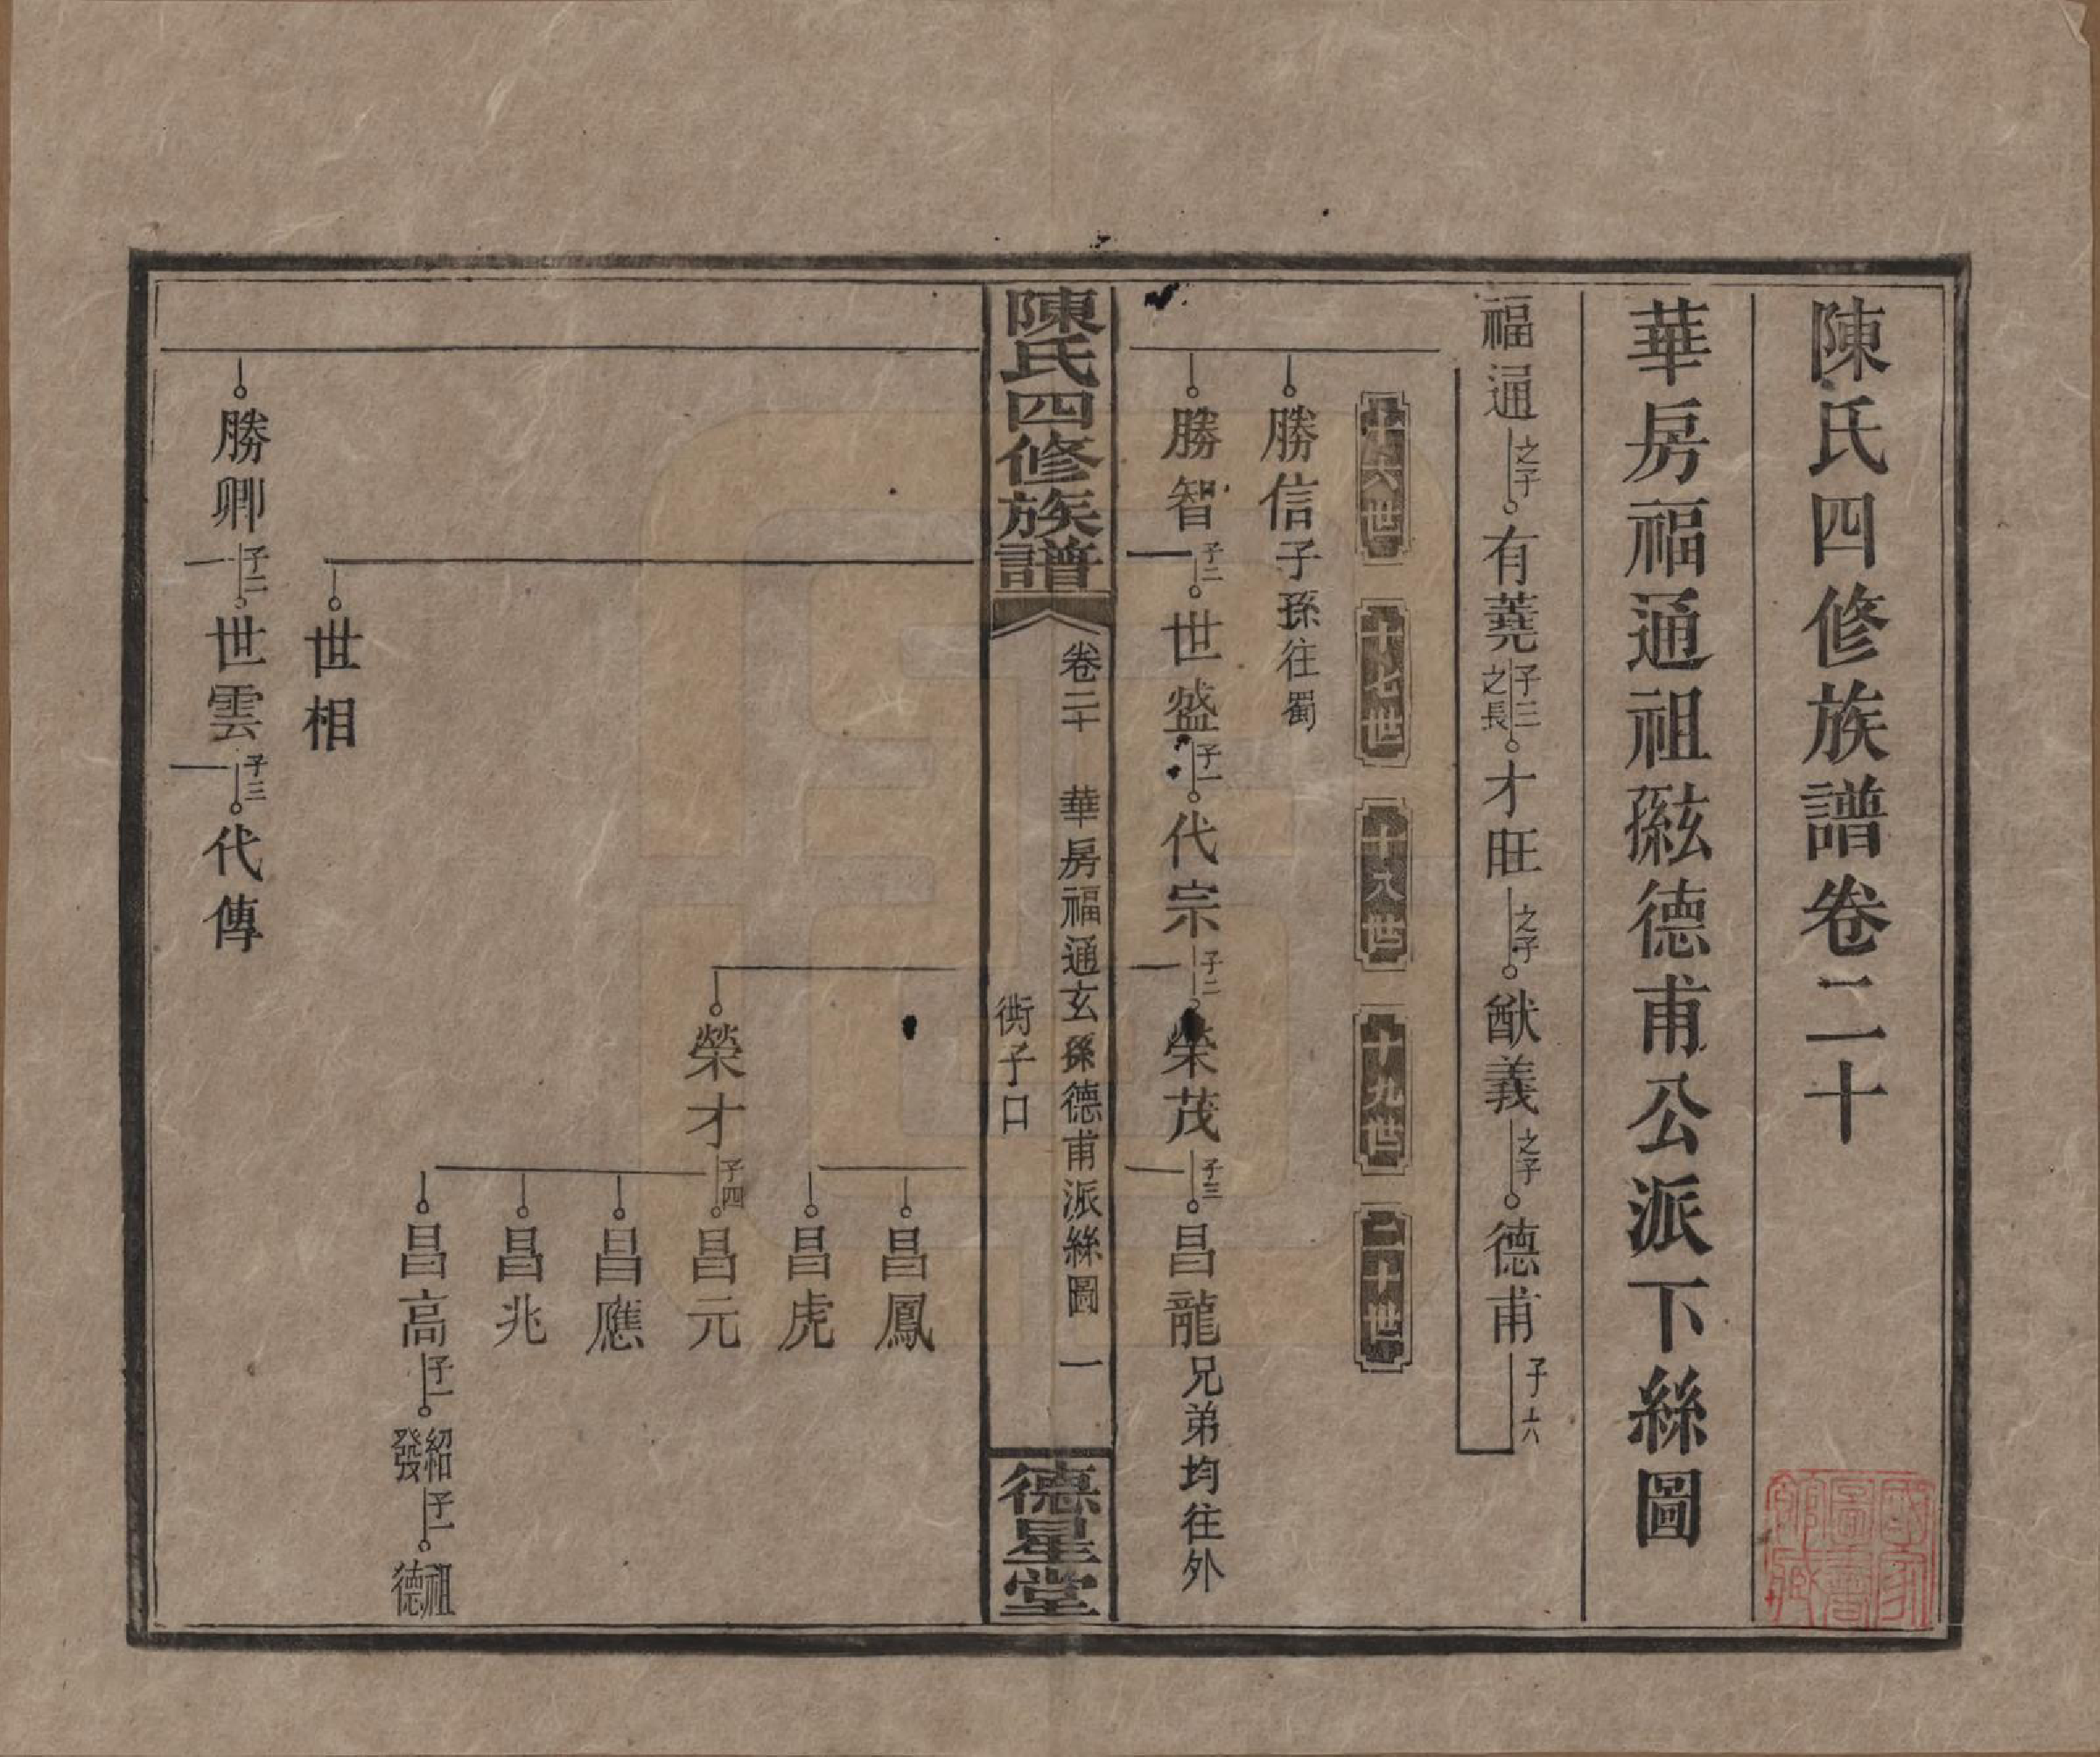 陳氏四修族譜卷二十
華房福通祖玅德甫公派下絲圖
福通之子有蕘子三之長才旺之子猷義之子德甫子六
十六世
十七世
十八世
十九世
二十世
勝信子孫往蜀
勝智子二世盛子一代宗子二榮茂子三昌龍兄弟均往外
陳氏四修族譜
卷二十
華房福通玄孫德甫派絲圖
一
衖子口
德星堂
昌鳳
昌虎
榮才子四昌元
昌應
昌兆
昌高子一紹發子一祖德
世相
勝卿子二世雲子三代傳
國家圖書館藏